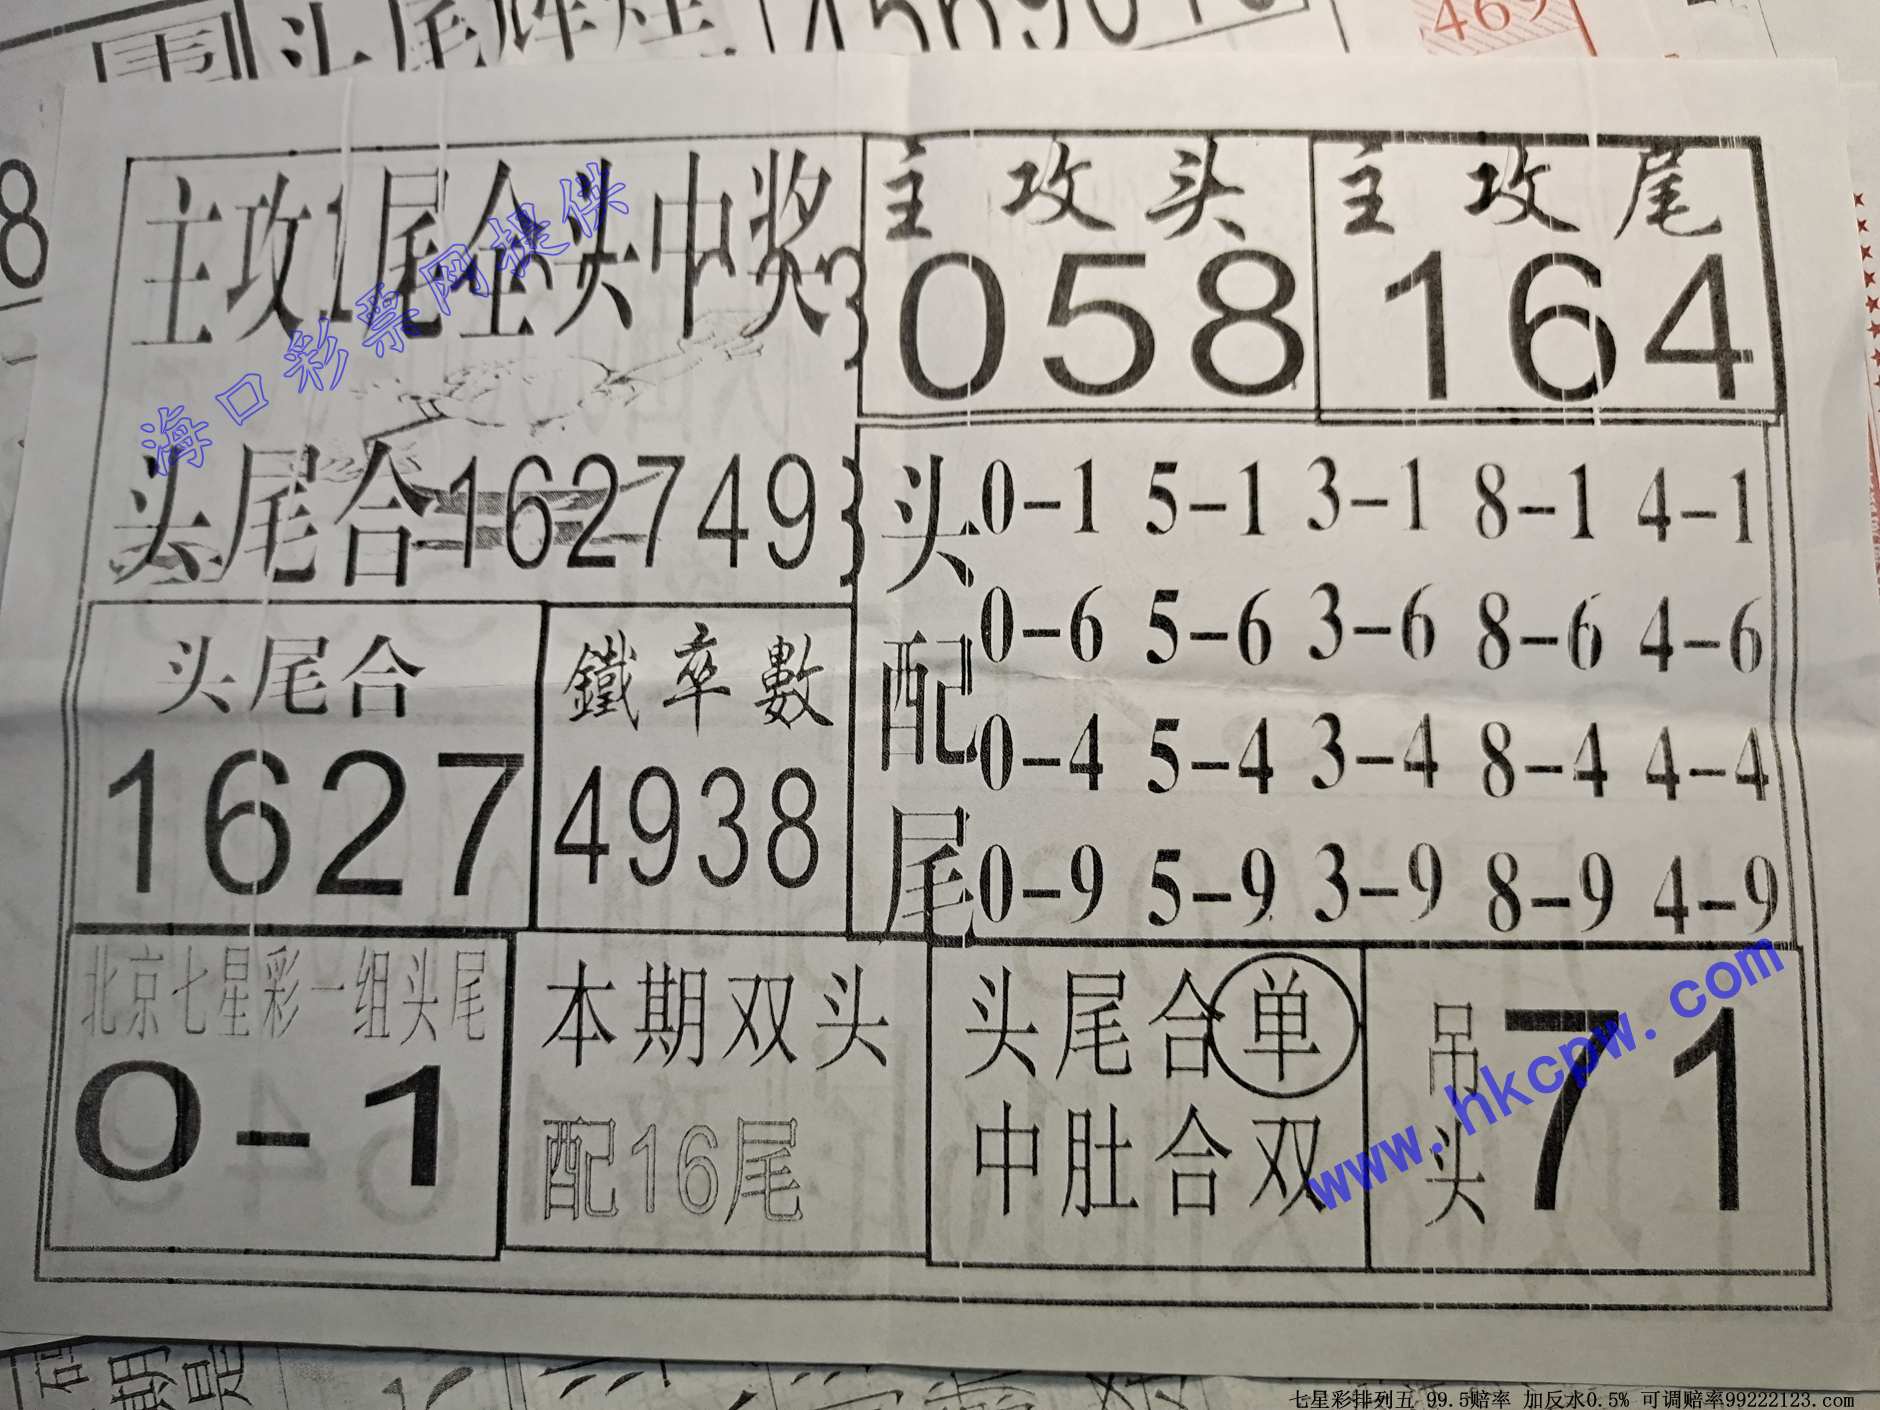 469
8
主攻1尾全头中奖
头尾合162749
主攻头
058
主攻尾
164
头配尾
0-1 5-1 3-1 8-1 4-1
0-6 5-6 3-6 8-6 4-6
0-4 5-4 3-4 8-4 4-4
0-9 5-9 3-9 8-9 4-9
头尾合
1627
鐵率數
4938
北京七星彩一组头尾
0-1
本期双头
配16尾
头尾合单
中肚合双
吊头
71
海口彩票网提供
www.hkcpw.com
七星彩排列五 99.5赔率 加反水0.5% 可调赔率99222123.com